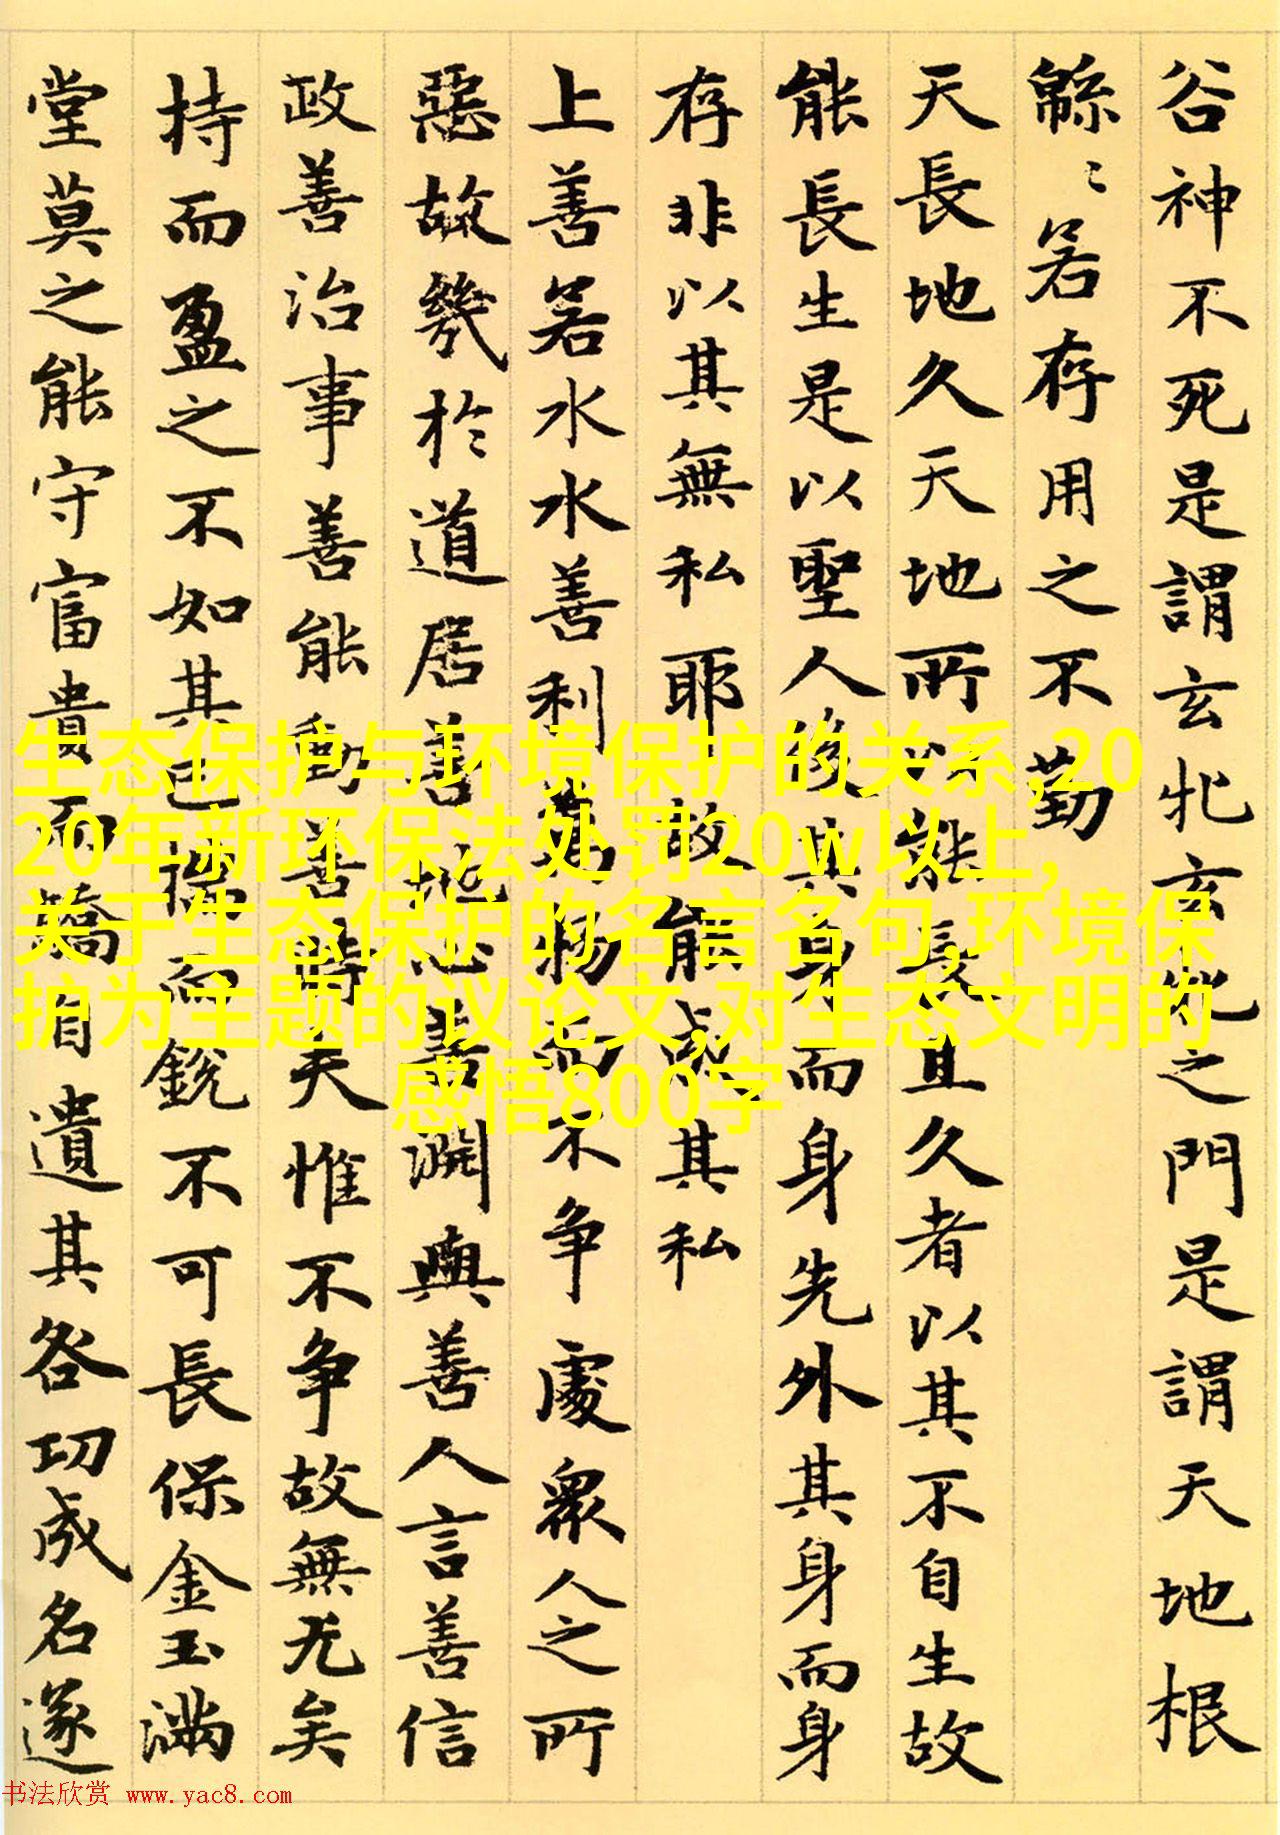 谷神不死是謂玄牝玄牝之門是謂天地根
緜〻若存用之不勤
天長地久天地所以能長且久者以其不自生故
能長生是以聖人後其身而身先外其身而身
存非以其無私耶故能成其私
上善若水水善利萬物而不争處衆人之所
惡故幾於道居善地心善渊與善人言善信
政善治事善能動善時夫惟不争故無尤矣
持而盈之不如其已揣而銳不可長保金玉满
堂莫之能守富貴而驕自遺其咎功成名遂
生态保护与环境保护的关系,20
20年新环保法处罚20w以上,
关于生态保护的名言名句,环境保
护为主题的议论文,对生态文明的
感悟800字
书法欣赏 www.yac8.com